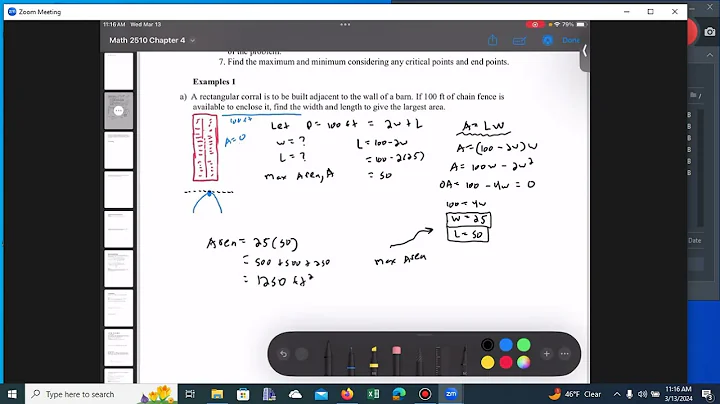 Zoom Meeting
11:16 AM Wed Mar 13
79%
Math 2510 Chapter 4
Done
of the problem.
7. Find the maximum and minimum considering any critical points and end points.
Examples 1
a) A rectangular corral is to be built adjacent to the wall of a barn. If 100 ft of chain fence is
available to enclose it, find the width and length to give the largest area.
100 ft
A=0
Let P = 100 ft = 2w + L
w = ?
L = 100 - 2w
L = ?
= 100 - 2(25)
max Area, A
= 50
A = LW
A = (100 - 2w)w
A = 100w - 2w²
DA = 100 - 4w = 0
100 = 4w
W = 25
L = 50
max Area
Area = 25(50)
= 500 + 500 + 250
= 1250 ft²
Type here to search
46°F Clear
11:16 AM
3/13/2024